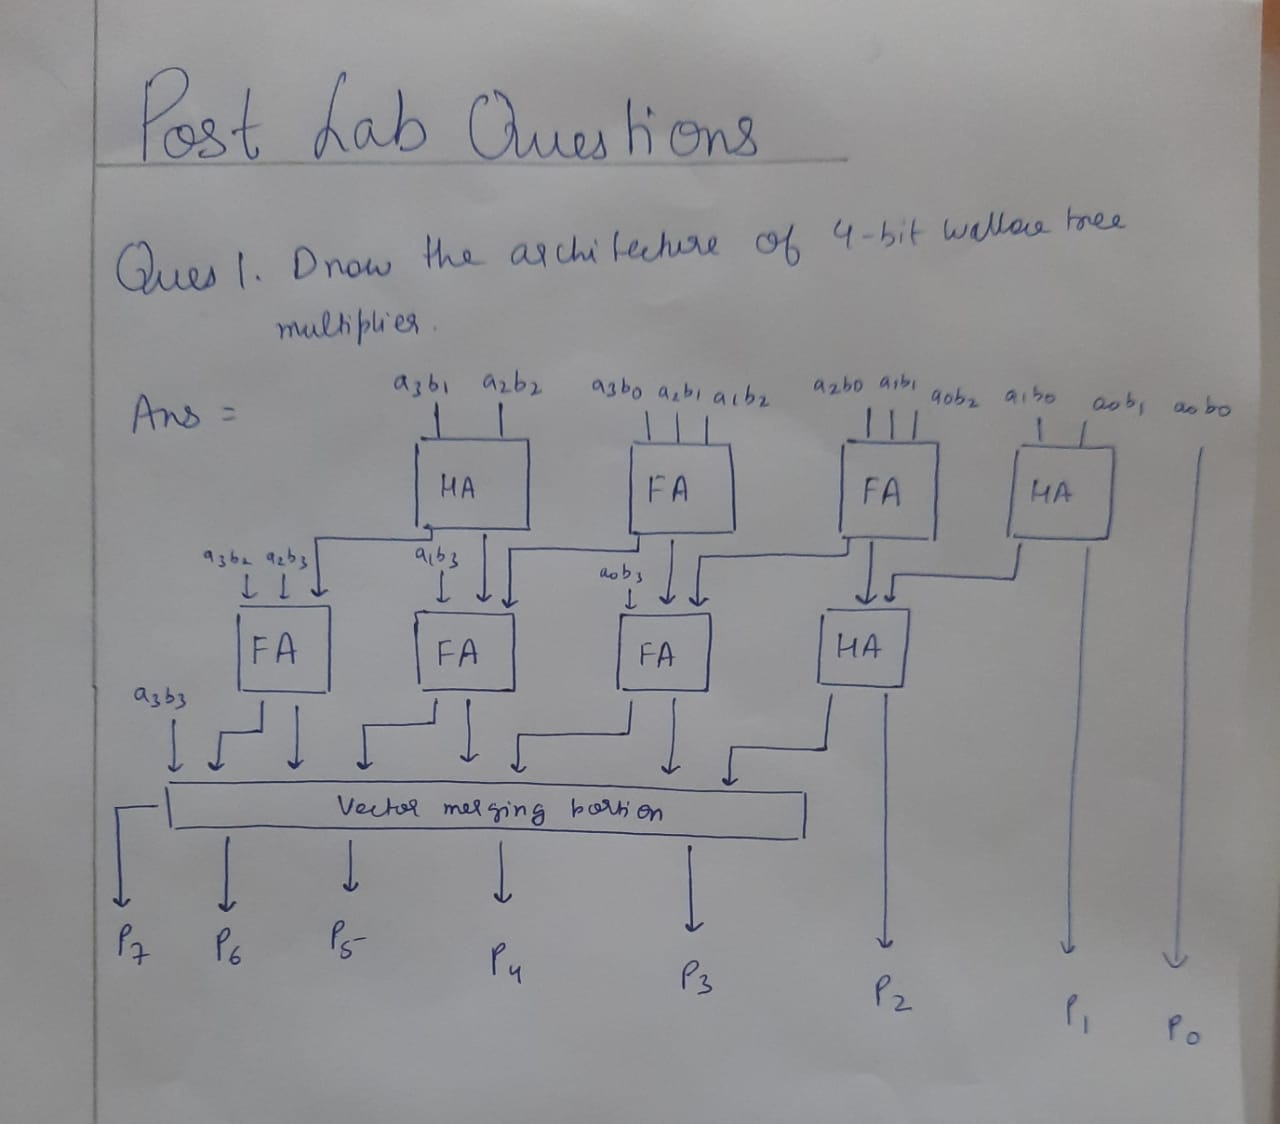 Post Lab Questions
Ques 1. Draw the architecture of 4-bit wallace tree
multiplier.
Ans =
a3b1 a2b2 a3b0 a2b1 a1b2 a2b0 a1b1 a0b2 a1b0 a0b1 a0b0
HA FA FA HA
a3b2 a2b3 a1b3 a0b3
FA FA FA HA
a3b3
Vector merging portion
P7 P6 P5 P4 P3 P2 P1 P0